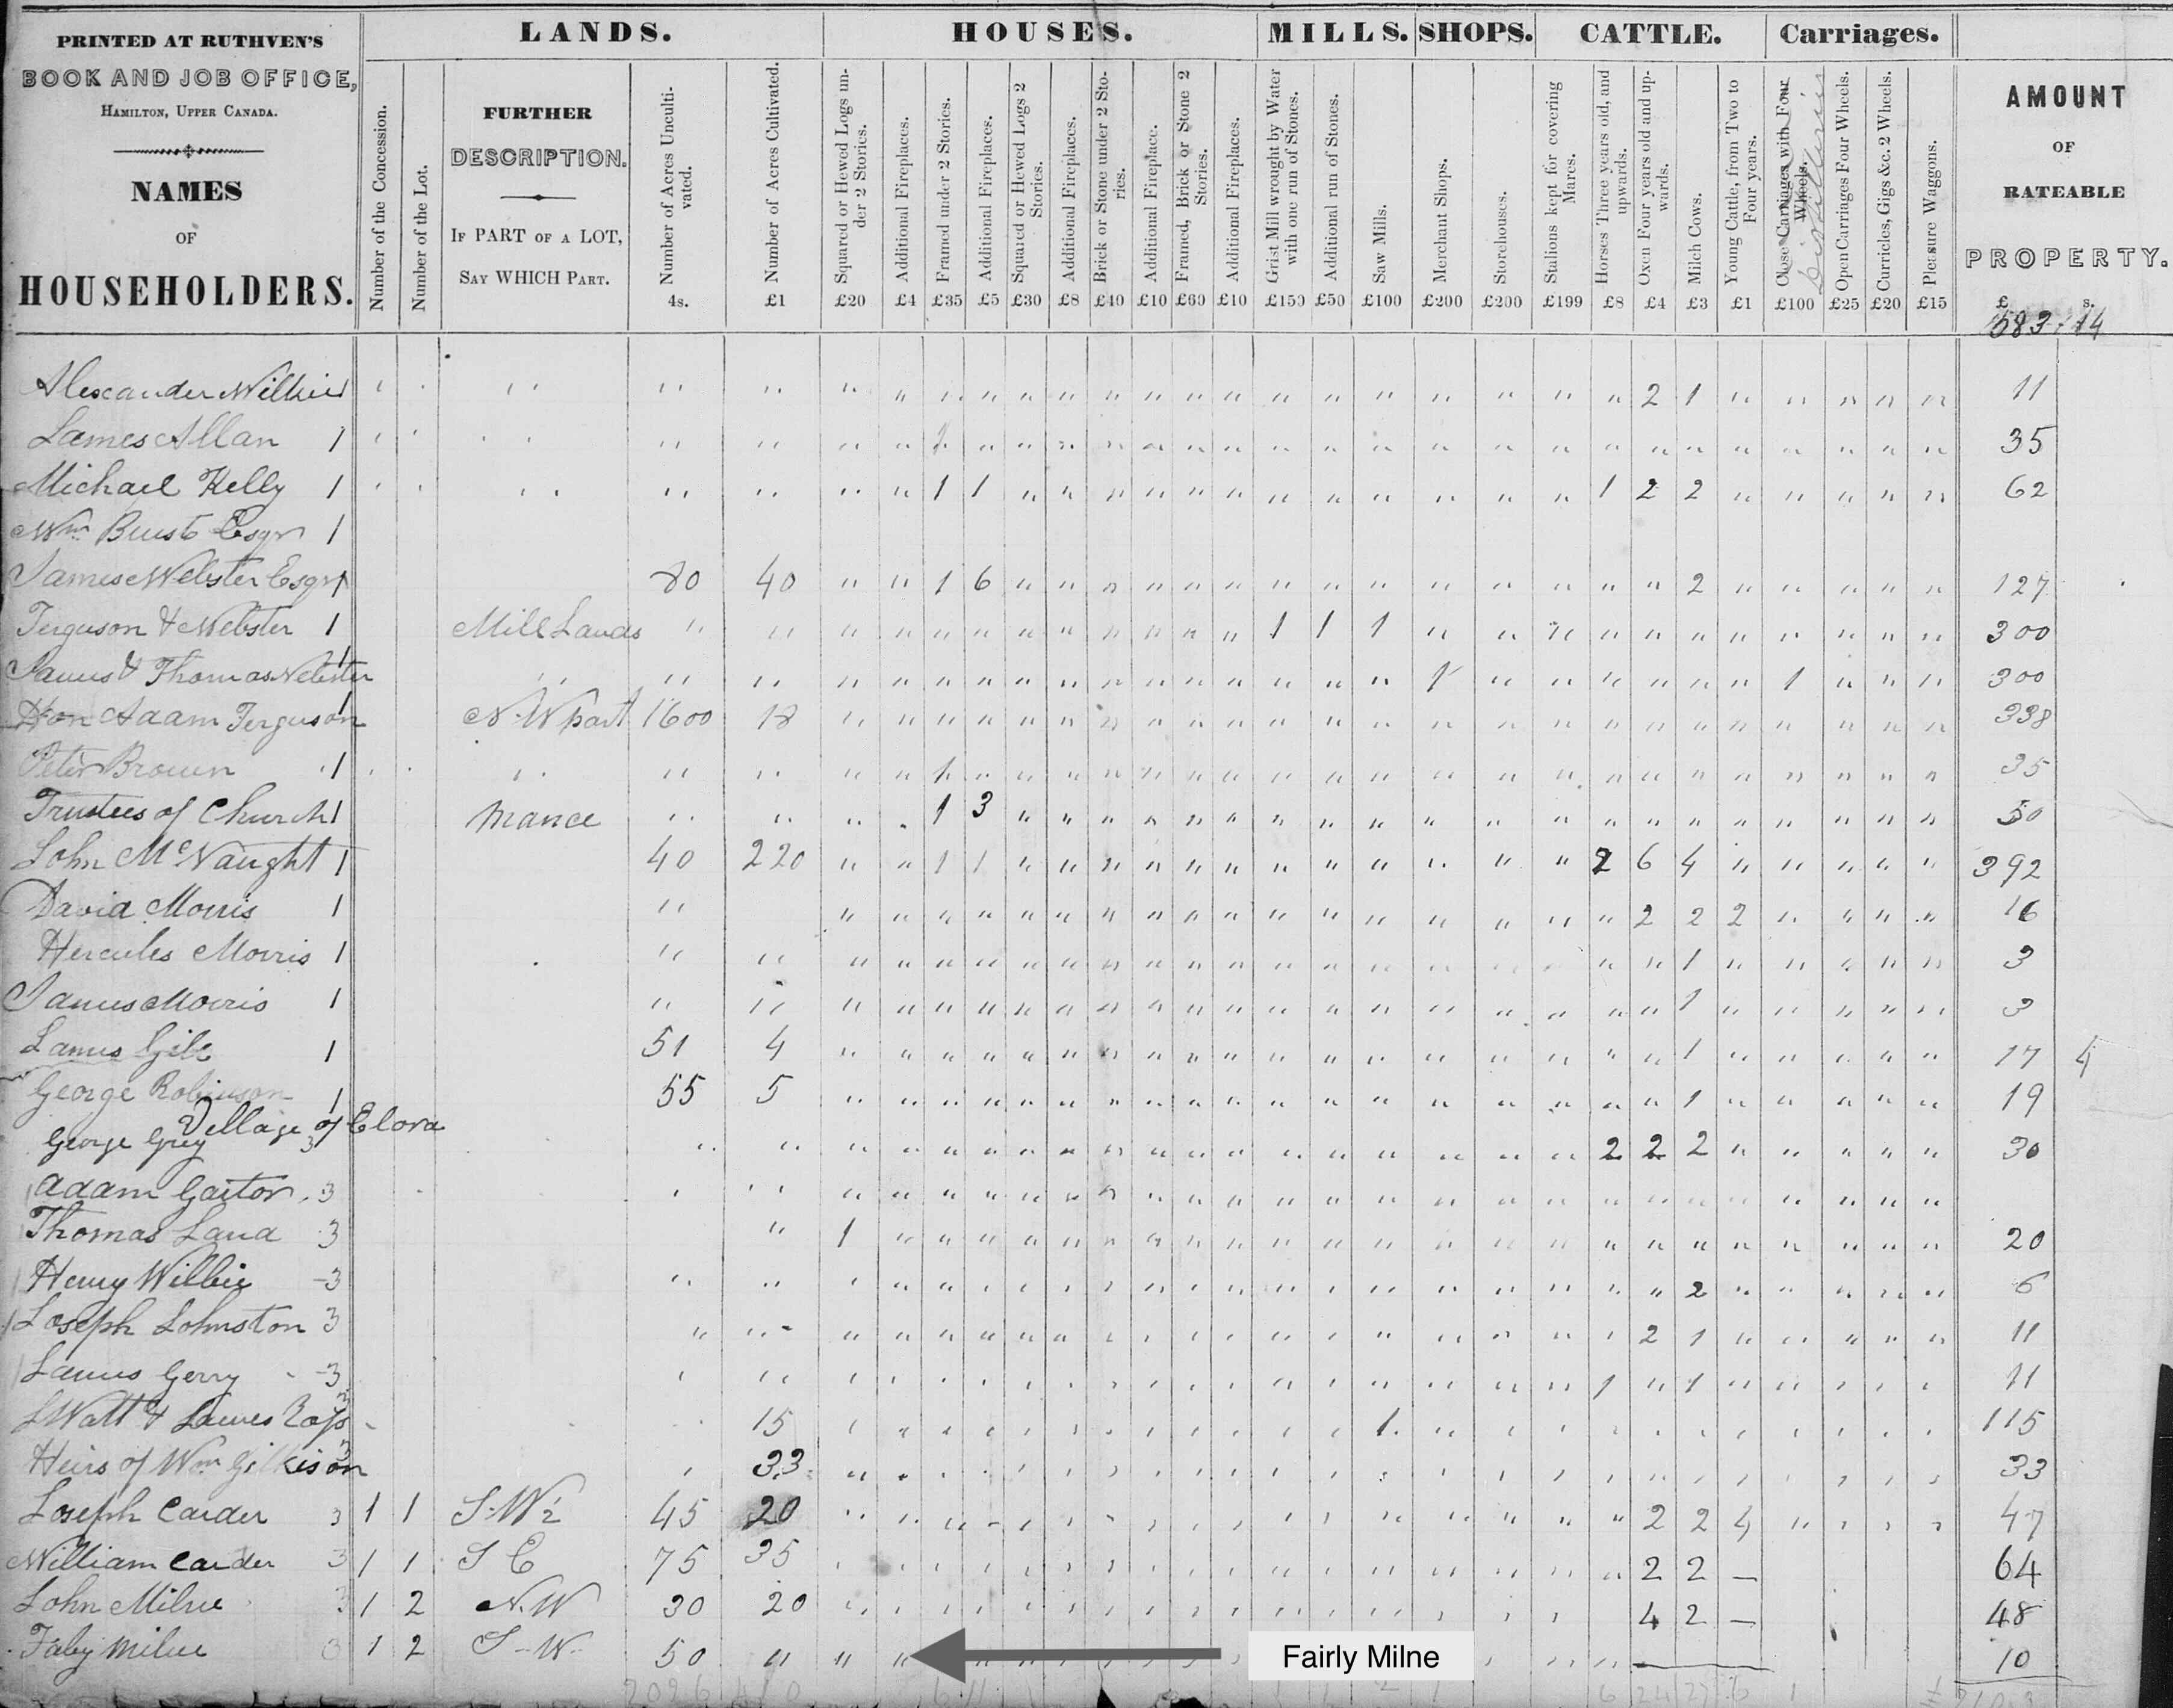 PRINTED AT RUTHVEN'S
BOOK AND JOB OFFICE,
HAMILTON, UPPER CANADA.
NAMES
OF
HOUSEHOLDERS.
Number of the Concession.
Number of the Lot.
LANDS.
FURTHER
DESCRIPTION.
IF PART OF A LOT,
SAY WHICH PART.
Number of Acres Uncultivated. 4s.
Number of Acres Cultivated. £1
HOUSES.
Squared or Hewed Logs under 2 Stories. £20
Additional Fireplaces. £4
Framed under 2 Stories. £35
Additional Fireplaces. £5
Squared or Hewed Logs 2 Stories. £30
Additional Fireplaces. £8
Brick or Stone under 2 Stories. £40
Additional Fireplace. £10
Framed, Brick or Stone 2 Stories. £60
Additional Fireplaces. £10
MILLS.
Grist Mill wrought by Water with one run of Stones. £150
Additional run of Stones. £50
Saw Mills. £100
SHOPS.
Merchant Shops. £200
Storehouses. £200
CATTLE.
Stallions kept for covering Mares. £199
Horses Three years old, and upwards. £8
Oxen Four years old and upwards. £4
Milch Cows. £3
Young Cattle, from Two to Four years. £1
Carriages.
Close Carriages with Four Wheels. £100
Open Carriages Four Wheels. £25
Curricles, Gigs &c. 2 Wheels. £20
Pleasure Waggons. £15
AMOUNT
OF
RATEABLE
PROPERTY.
£ s.
583 14
Alexander Wilkie 2 1 11
James Allan 1 35
Michael Kelly 1 1 1 1 2 2 62
Wm Esqr 1
James Webster Esqr 1 80 40 1 6 2 127
Ferguson & Webster 1 Mill Lands 1 1 1 300
James & Thomas Webster 1 1 1 300
Hon Adam Ferguson 1 N.W part 1600 18 338
Peter Brown 1 1 35
Trustees of Church 1 Mance 1 3 50
John McNaught 1 40 220 1 1 2 6 4 392
David Morris 1 2 2 2 16
Hercules Morris 1 1 3
James Morris 1 1 3
James 1 51 4 1 17 4
George Robinson 1 55 5 1 19
Village of Elora
George Grey 3 2 2 2 30
Adam 3
Thomas 3 1 20
Henry Wilkie 3 2 6
Joseph Johnston 3 2 1 11
James Gerry 3 1 1 11
J Watt & James Ross 3 15 1 115
Heirs of Wm Gilkison 3 33 33
Joseph Carder 3 1 1 S.W ½ 45 20 2 2 4 47
William Carder 3 1 1 S E 75 35 2 2 — 64
John Milne 3 1 2 N.W 30 20 4 2 — 48
Milne 1 2 S-W 50 10
Fairly Milne